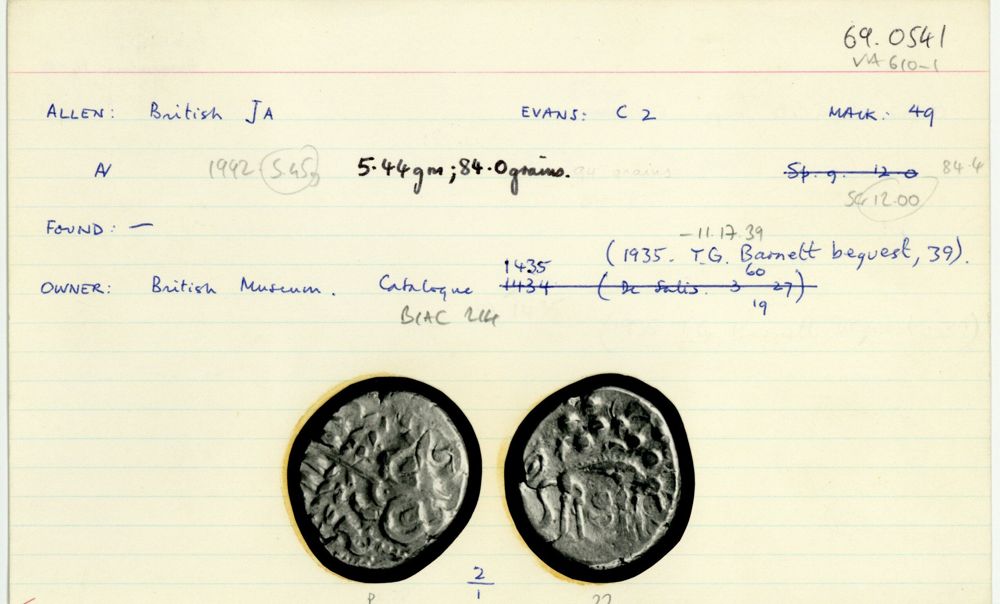 69.0541
VA 610-1
ALLEN: British JA EVANS: C 2 MACK: 49
N 1992 5.45 5.44gm; 84.0grains. Sp. g. 12.0 84.4
SG 12.00
FOUND: — -11.17.39
1435 (1935. T.G. Barnett bequest, 39).
OWNER: British Museum. Catalogue 1434 (De Salis. 3 27)
60
19
BIAC 214
2
1